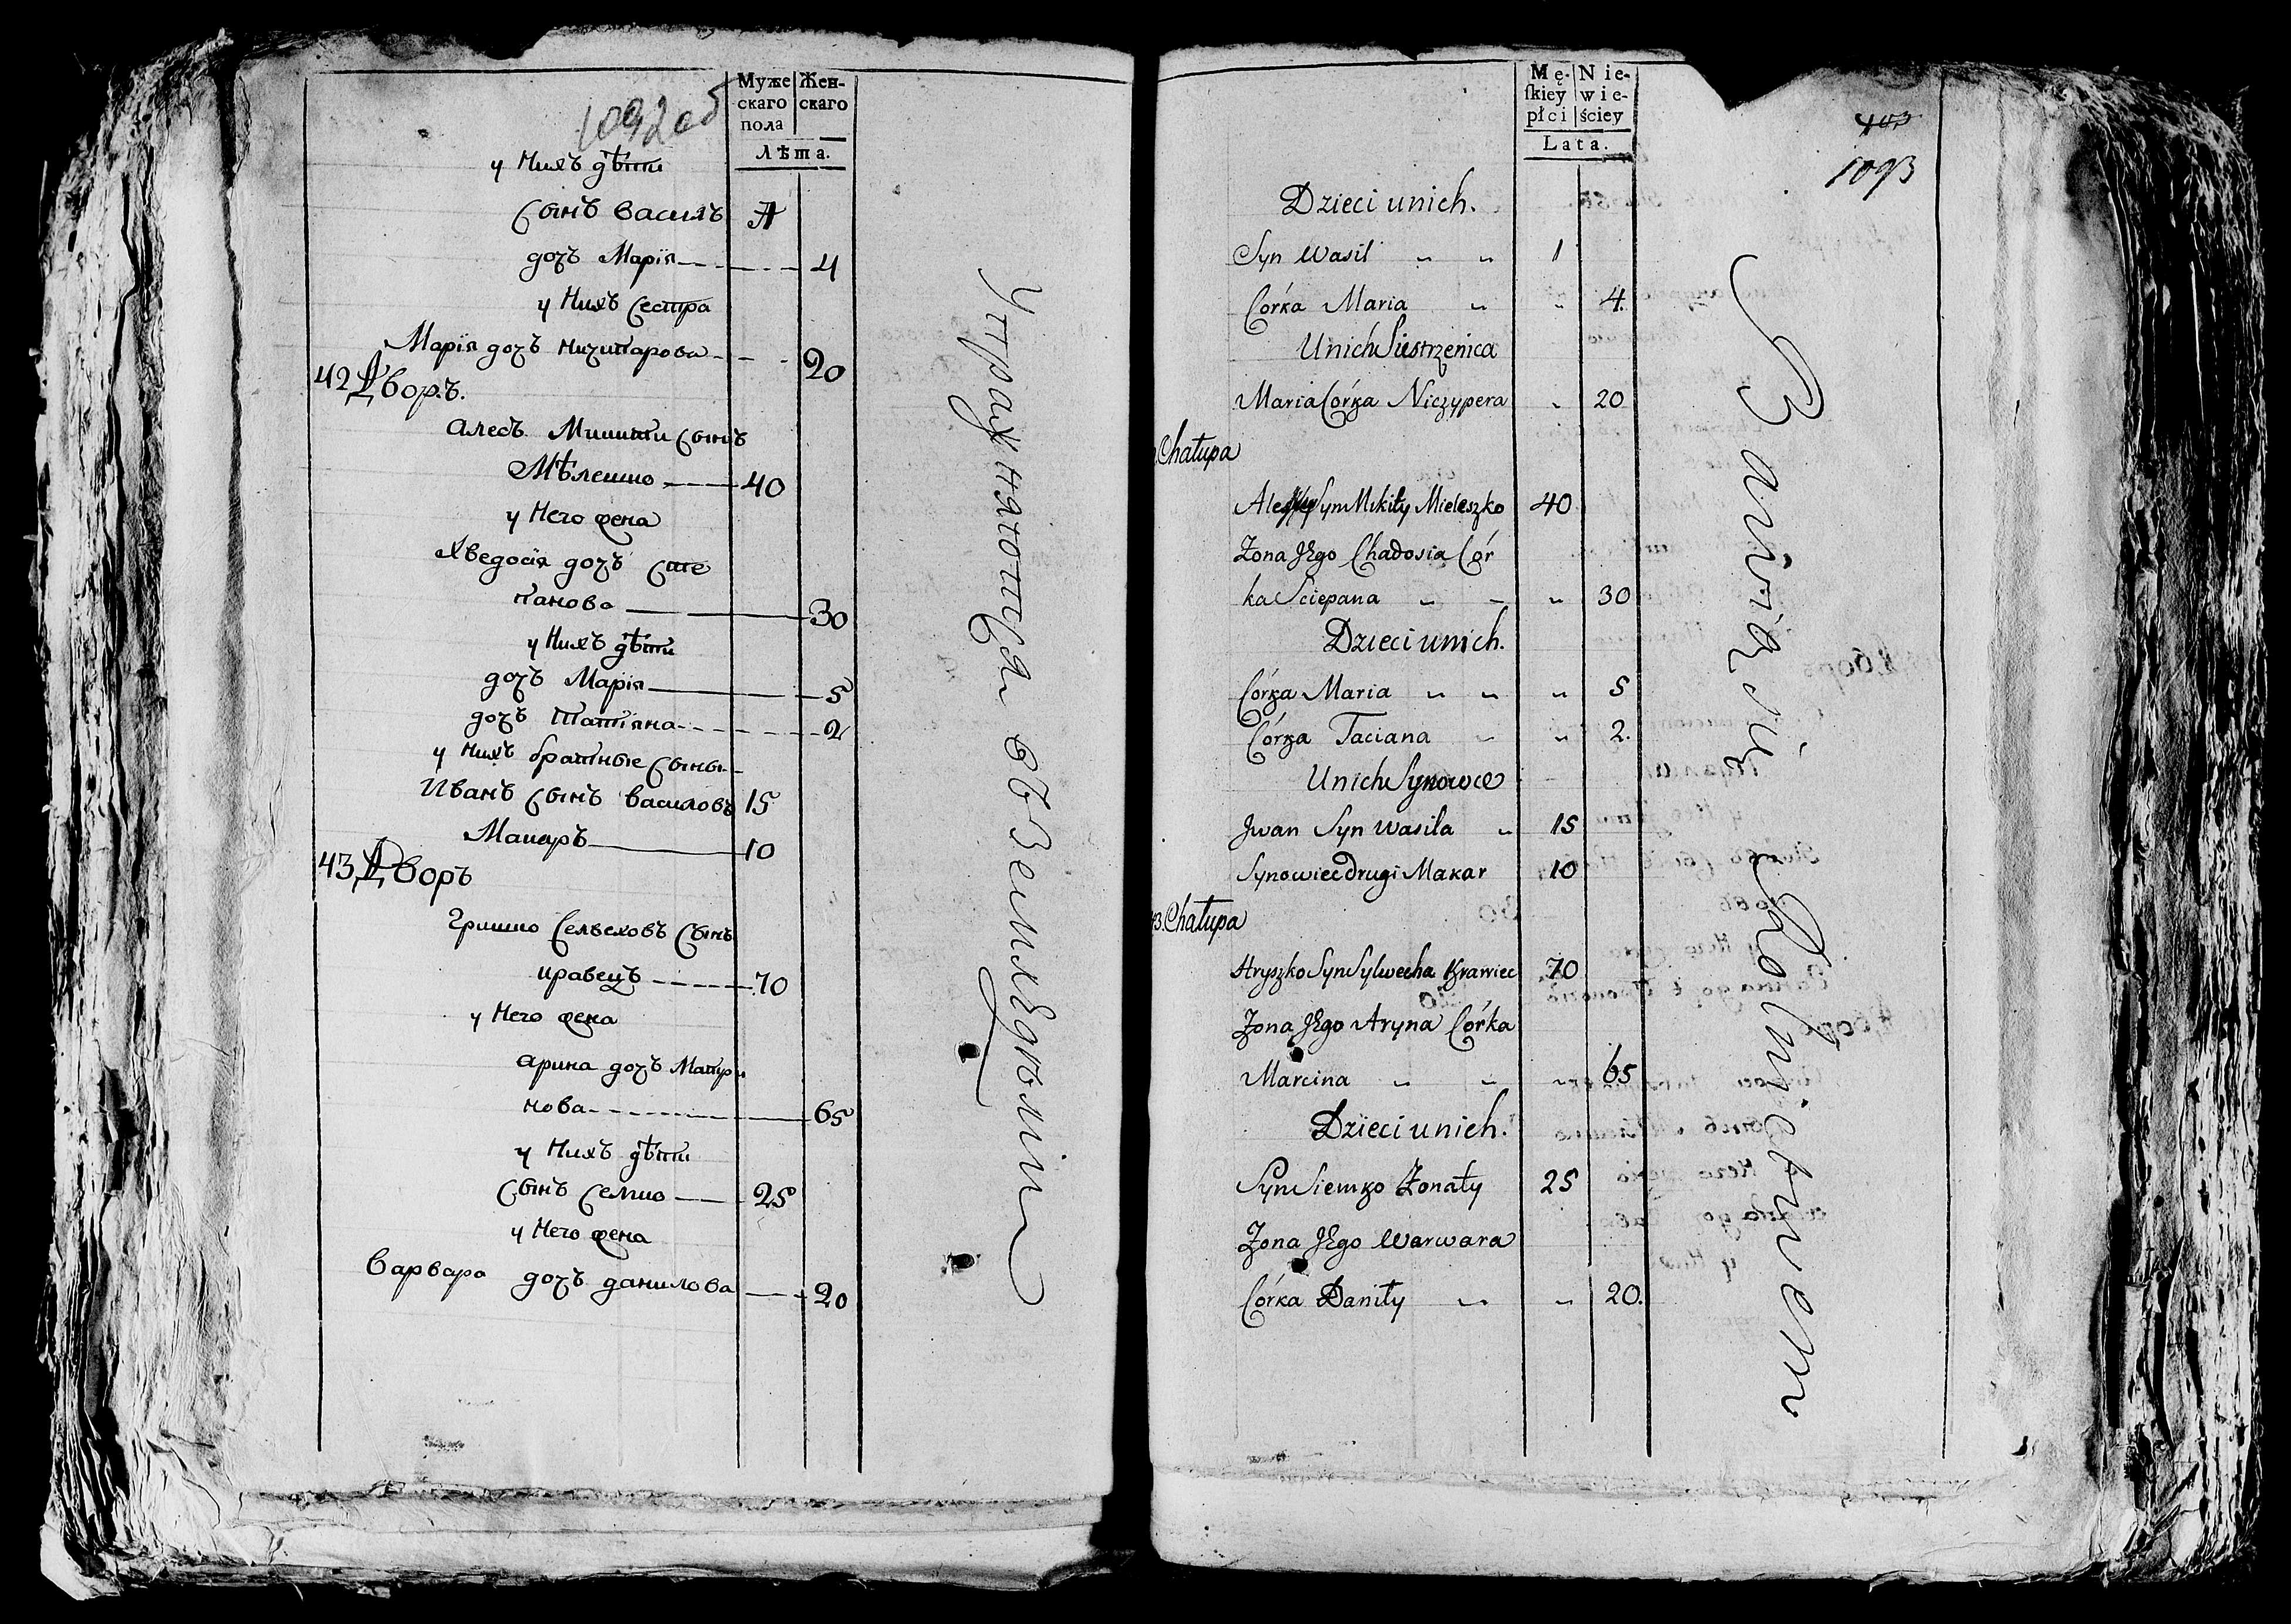 1092 об
Муже
скаго
пола
Жен-
скаго
Лѣта.
у Нихъ дѣти
Сынъ Василь 1
дочъ Марія 4
у Нихъ Сестра
Марія дочъ Ничипарова 20
42 Дворъ.
Алесь Микити Сынъ
Мѣлешко 40
у Него жена
Хведосія дочъ Сте
панова 30
у Нихъ дѣти
дочъ Марія 5
дочъ Татіяна 2
у Нихъ братные Сыны
Иванъ Сынъ Василовъ 15
Макаръ 10
43 Дворъ
Гришко Сельвеховъ Сынъ
кравецъ 70
у Него жена
Арина дочъ Матри
нова 65
у Нихъ дѣти
Сынъ Семко 25
у Него жена
Варвара дочъ данилова 20
Упражняются въ Земледѣліи
Mę-
skiey
płci
Nie-
wie-
ściey
Lata.
403
1093
Dzieci unich.
Syn Wasil „ „ 1
Córka Maria „ „ 4.
Unich Siestrzenica
Maria Córka Niczypera „ 20
Chałupa
Syn Mikity Mieleszko 40
Żona Jego Chadosia Cór
ka Sciepana „ „ „ 30
Dzieci unich.
Córka Maria „ „ „ 5
Córka Taciana „ „ 2.
Unich Synowce
Jwan Syn Wasila „ 15
Synowiec drugi Makar 10
43. Chałupa
Hryszko Syn Sylwecha Krawiec 70
Żona Jego Aryna Córka
Marcina „ „ „ 65
Dzieci unich.
Syn Siemko Żonaty 25
Żona Jego Warwara
Córka Daniły „ „ 20.
Bawią się Rolnictwem